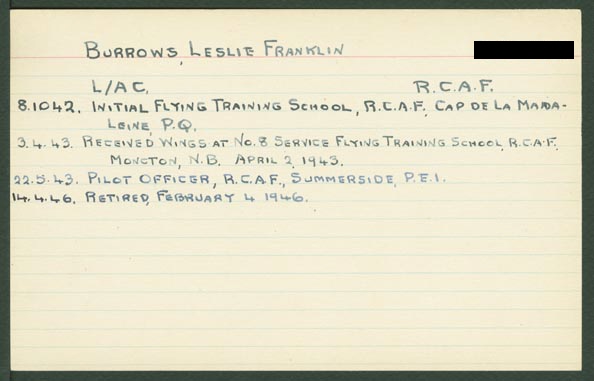 BURROWS, LESLIE FRANKLIN
L/AC. R.C.A.F.
8.10.42. INITIAL FLYING TRAINING SCHOOL, R.C.A.F. CAP DE LA MADA-
LEINE, P.Q.
3.4.43. RECEIVED WINGS AT NO. 8 SERVICE FLYING TRAINING SCHOOL, R.C.A.F.
MONCTON, N.B. APRIL 2, 1943.
22.5.43. PILOT OFFICER, R.C.A.F., SUMMERSIDE, P.E.I.
14.4.46. RETIRED, FEBRUARY 4 1946.